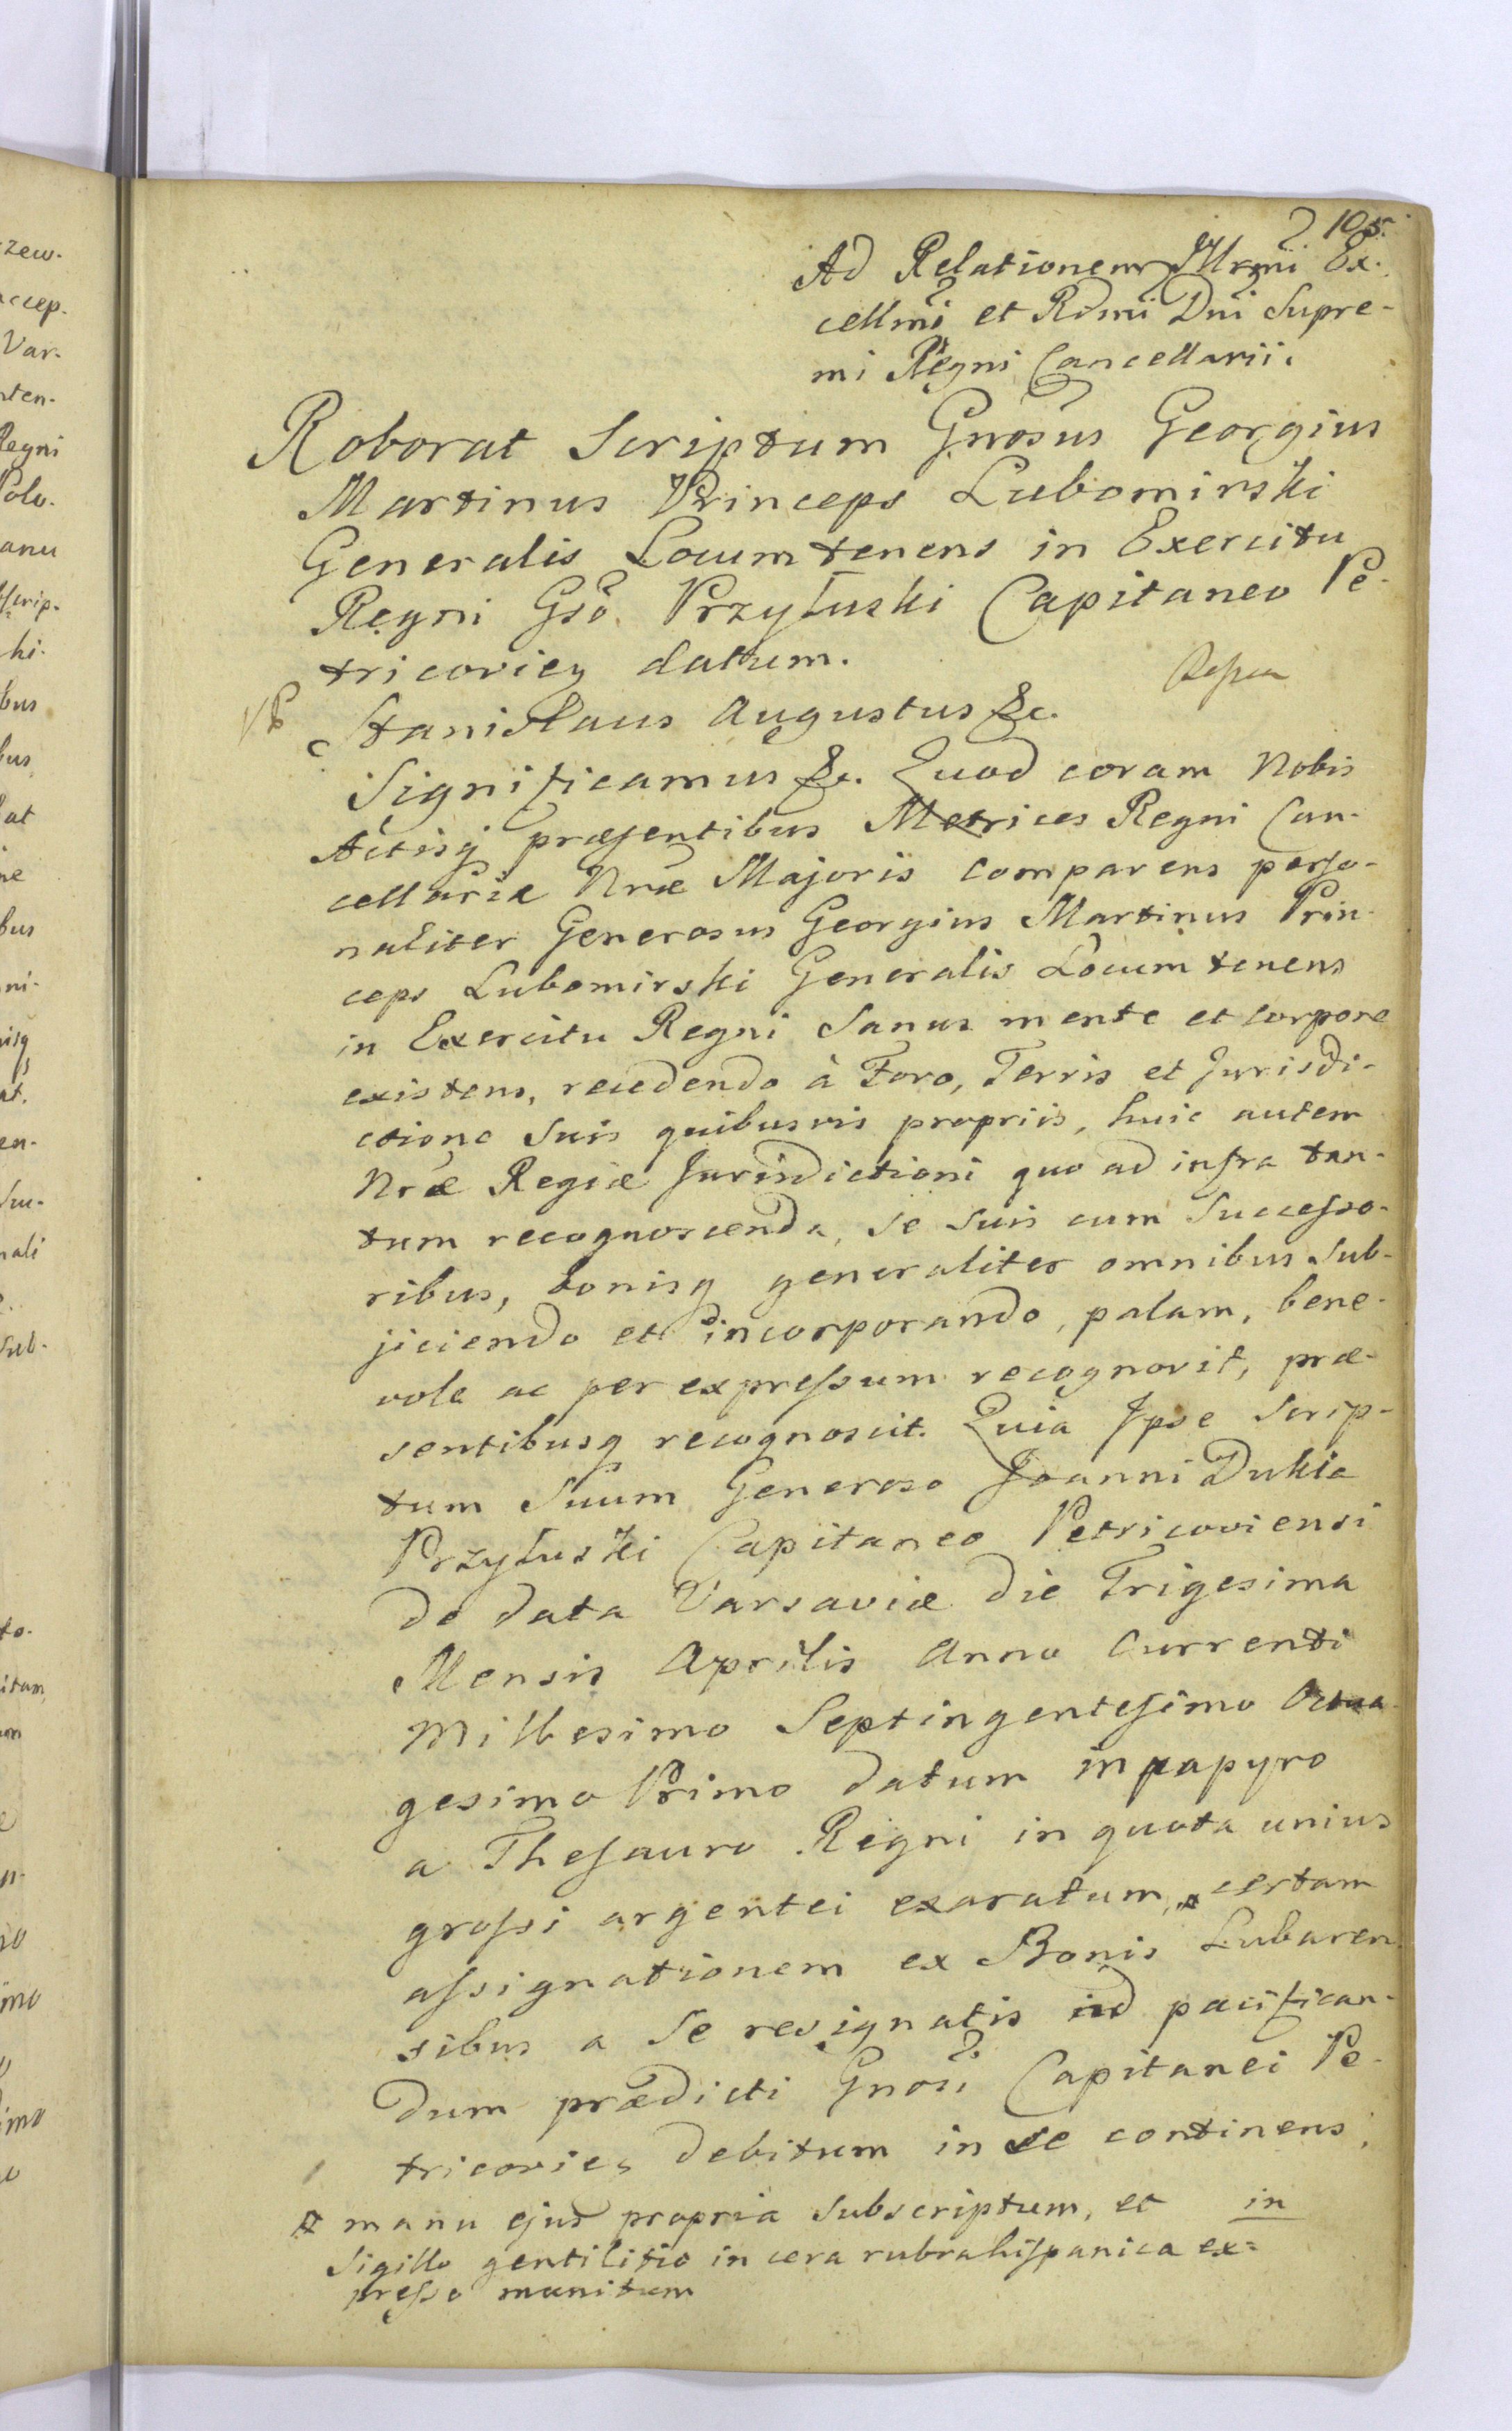 105.
Ad Relationem Illrmi Ex-
cellmi et Rdmi Dni Supre-
mi Regni Cancellarii.
Roborat Scriptum Gnosus Georgius
Martinus Princeps Lubomirski
Generalis Locumtenens in Exercitu
Regni Gso Przyłuski Capitaneo Pe-
tricoviey datum.
Stanislaus Augustus &c.
Significamus &c. Quod coram Nobis
Actisq præsentibus Metrices Regni Can-
cellariæ Nræ Majoris comparens perso-
naliter Generosus Georgius Martinus Prin-
ceps Lubomirski Generalis Locumtenens
in Exercitu Regni Sanus mente et corpore
existens, recedendo à Foro, Terris et Jurisdi-
ctione Suis quibusvis propriis, huic autem
Nræ Regiæ Jurisdictioni quo ad infra tan-
tum recognoscenda, se suis cum Successo-
ribus, bonisq generaliter omnibus Sub-
jiciendo et incorporando, palam, bene-
vole ac per expressum recognovit, præ-
sentibusq recognoscit. Quia Ipse Scrip-
tum Suum Generoso Joanni Dukla
Przyłuski Capitaneo Petricoviensi
de data Varsaviæ die Trigesima
Mensis Aprilis Anno Currenti
Millesimo Septingentesimo Octua-
gesimo Primo datum in papyro
a Thesauro Regni in quota unius
grossi argentei exaratum, certam
assignationem ex Bonis Lubaren-
sibus a Se resignatis ad pacifican-
dum prædicti Gnosi Capitanei Pe-
tricovies debitum in se continens,
manu ejus propria subscriptum, et in
Sigillo gentilitio in cera rubra hispanica ex=
presso munitum